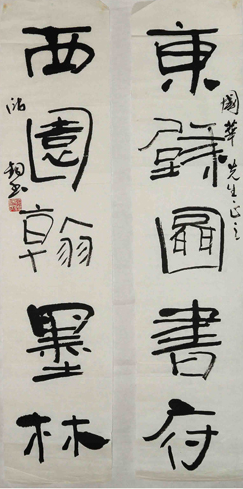 東壁圖書府
國華先生正之
西園翰墨林